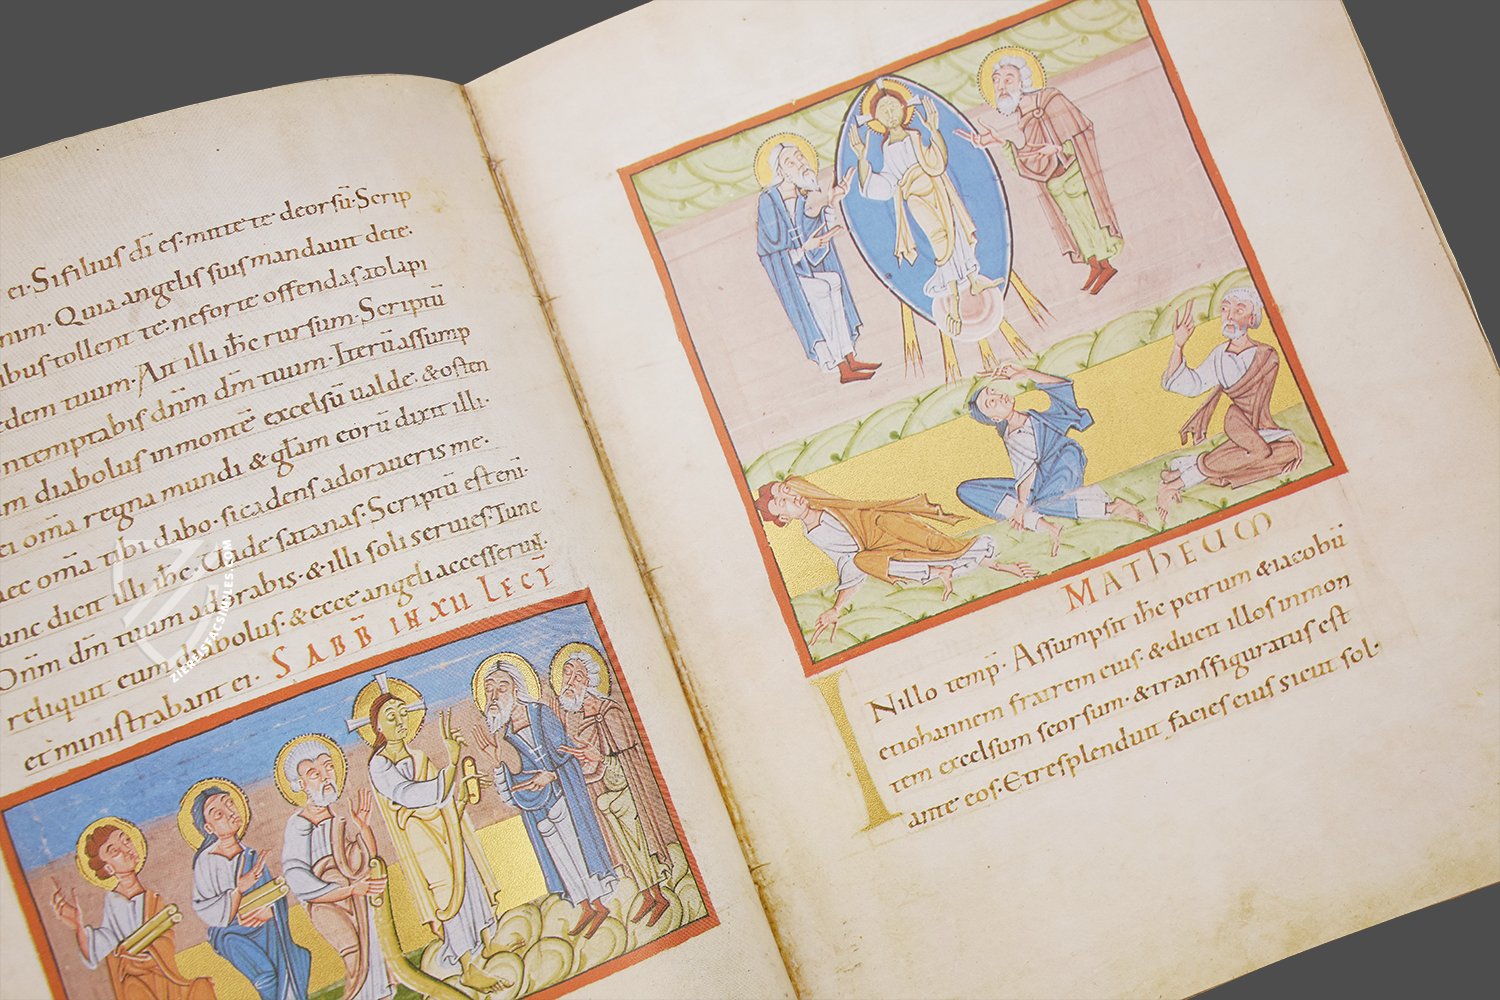 ei· Si filius dī es· mitte te deorsū· Scrip
nim· Quia angelis suis mandavit dete·
ibus tollent te· neforte offendas adlapi
edem tuum· Ait illi ihc rursum· Scriptū
ntemptabis dnm dm tuum· Iterū assump
m diabolus inmontē excelsū ualde· & osten
ei oma regna mundi & glam eorū dixit illi·
ec oma tibi dabo· sicadens adoraueris me·
unc dicit illi ihc· Uade satanas· Scriptū est enī·
Dnm dm tuum adorabis· & illi soli seruies· Tunc
reliquit eum diabolus· & ecce angeli accesserun̄·
et ministrabant ei· SABB IN XII LECT̄
MATHEUM
INillo temp̄· Assumpsit ihc petrum & iacobū
etiohannem fratrem eius· & ducit illos inmon
tem excelsum seorsum· & transfiguratus est
ante eos· Et resplenduit facies eius sicut sol·
ZIEREISFACSIMILES.COM